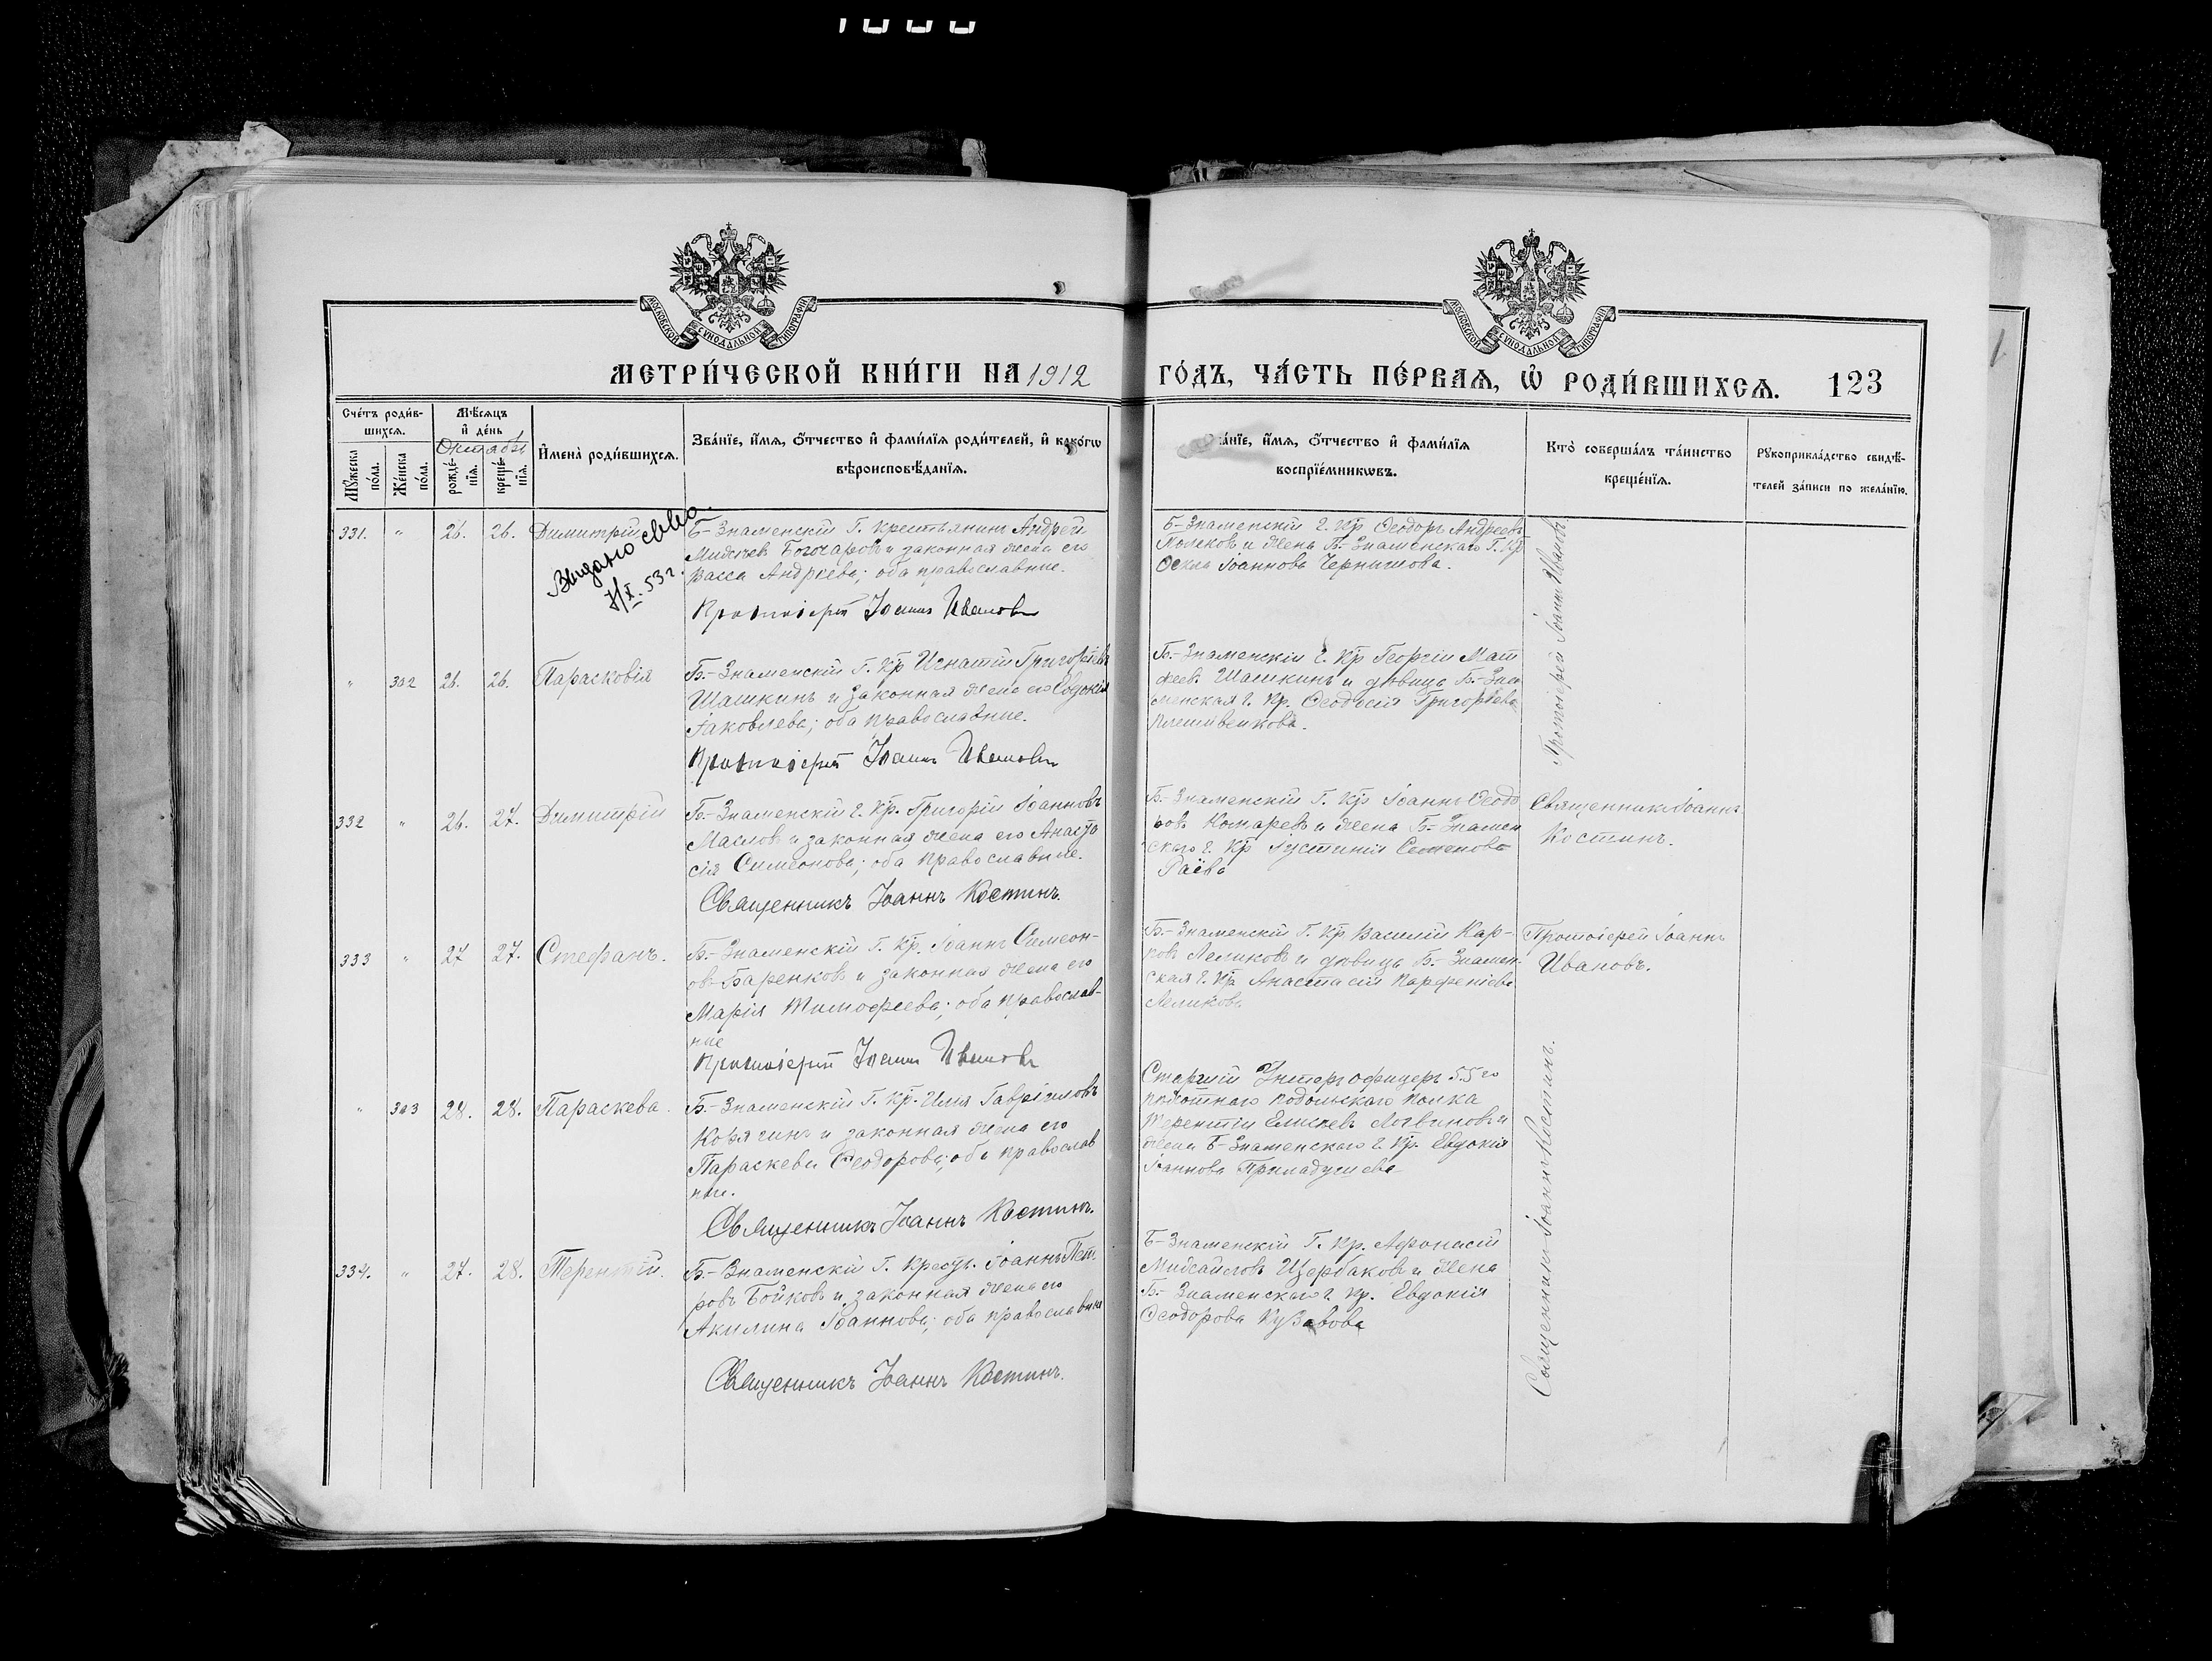 МОСКОВСКОЙ СУНОДАЛЬНОЙ ТИПОГРАФІИ
МОСКОВСКОЙ СУНОДАЛЬНОЙ ТИПОГРАФІИ
МЕТРИ́ЧЕСКОЙ КНИ́ГИ НА 1912 ГО́ДЪ, ЧА́СТЬ ПЕ́РВАѦ, Ѡ҆ РОДИ́ВШИХСѦ. 123
Сче́тъ роди́в-
шихсѧ.
Мꙋ́жеска по́ла.
Же́нска по́ла.
Мѣ́сѧцъ
и҆ де́нь
Октябрь
рожде́-
нїѧ.
креще́-
нїѧ.
И҆мена̀ роди́вшихсѧ.
Зва́нїе, и҆́мѧ, ѻ҆́тчество и҆ фами́лїѧ роди́телей, и҆ како́гѡ
вѣроисповѣ́данїѧ.
и҆́мѧ, ѻ҆́тчество и҆ фами́лїѧ
воспрїе́мникѡвъ.
Кто̀ соверша́лъ та́инство
креще́нїѧ.
Рꙋкоприкла́дство свидѣ́-
телей за́писи по жела́нїю.
331. " 26. 26. Димитрій
Выдано свид.
X. 53 г.
Б-Знаменскій Г. крестьянинъ Андрей
Богочаровъ и законная жена его
Васса Андреева; оба православные.
Протоіерей Іоаннъ Ивановъ
Б-Знаменскій г. кр Ѳеодоръ Андреевъ
Поляковъ и жена Б.-Знаменскаго Г. Кр
Іоаннова Чернышова.
Протоіерей Іоаннъ Ивановъ
" 302 26. 26. Парасковія
Б.-Знаменскій Г. Кр Игнатій Григорьевъ
Шашкинъ и законная жена его Евдокія
Іаковлева; оба православные.
Протоіерей Іоаннъ Ивановъ
Б.-Знаменскій г. кр Георгій Мат
ѳеевъ Шашкинъ и дѣвица Б.-Зна
менская г. Кр. Ѳеодосія Григорьева
332 " 26. 27. Димитрій
Б.-Знаменскій г. Кр. Григорій Іоанновъ
Масловъ и законная жена его Анаста
сія Симеонова; оба православные.
Священникъ Іоаннъ Костинъ.
Б.-Знаменскій Г. Кр Іоаннъ Ѳеодо
ровъ Комаревъ и жена Б.-Знамен
скаго г. Кр Іустинія Семенова
Раёва
Священникъ Іоаннъ
Костинъ.
333 " 27 27. Стефанъ.
Б.-Знаменскій Г. Кр. Іоаннъ Симеон-
овъ Баренковъ и законная жена его
Марія Тимофеева; оба православ-
ные
Протоіерей Іоаннъ Ивановъ
Б.-Знаменскій Г. Кр Василій Кар-
повъ Леликовъ и дѣвица Б.-Знамен-
ская г. Кр Анастасія Парфеніева
Леликова.
Протоіерей Іоаннъ
Ивановъ.
" 303 28. 28. Параскева.
Б.-Знаменскій Г. Кр. Илія Гавріиловъ
Корягинъ и законная жена его
Параскева Ѳеодорова; оба православ
ные.
Священникъ Іоаннъ Костинъ.
Старшій Унтеръ офицеръ 55 го
пѣхотнаго Подольскаго полка
Терентій Елисеевъ Логвиновъ и
жена Б-Знаменскаго г. Кр. Евдокія
Іоаннова
Священникъ Іоаннъ Костинъ.
334. " 27. 28. Терентій.
Б.-Знаменскій Г. Крест. Іоаннъ Пет-
ровъ Бойковъ и законная жена его
Акилина Іоаннова; оба православные
Священникъ Іоаннъ Костинъ.
Б-Знаменскій Г. Кр. Афонасій
Михайловъ Щербаковъ и жена
Б.-Знаменскаго г. кр. Евдокія
Ѳеодорова